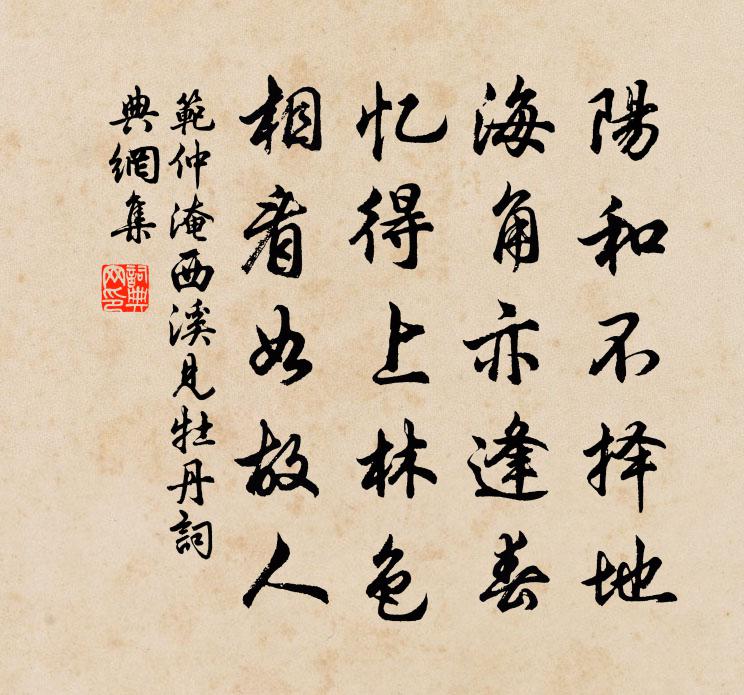 陽和不择地
海角亦逢春
忆得上林色
相看如故人
範仲淹西溪見牡丹詞
典網集
詞典網印